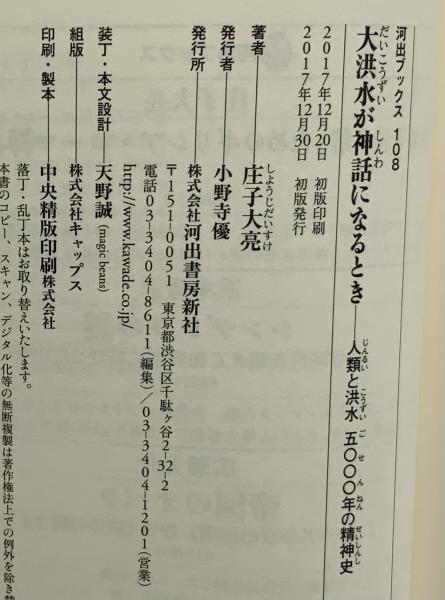 河出ブックス 108
大洪水が神話になるとき――人類と洪水 五〇〇〇年の精神史
だいこうずい しんわ じんるい こうずい ごせんねん せいしんし
2017年12月20日 初版印刷
2017年12月30日 初版発行
著者――庄子大亮
しょうじだいすけ
発行者――小野寺優
発行所――株式会社河出書房新社
〒151-0051 東京都渋谷区千駄ヶ谷2-32-2
電話03-3404-8611(編集)/03-3404-1201(営業)
http://www.kawade.co.jp/
装丁・本文設計――天野誠(magic beans)
組版――株式会社キャップス
印刷・製本――中央精版印刷株式会社
落丁・乱丁本はお取り替えいたします。
本書のコピー、スキャン、デジタル化等の無断複製は著作権法上での例外を除き禁